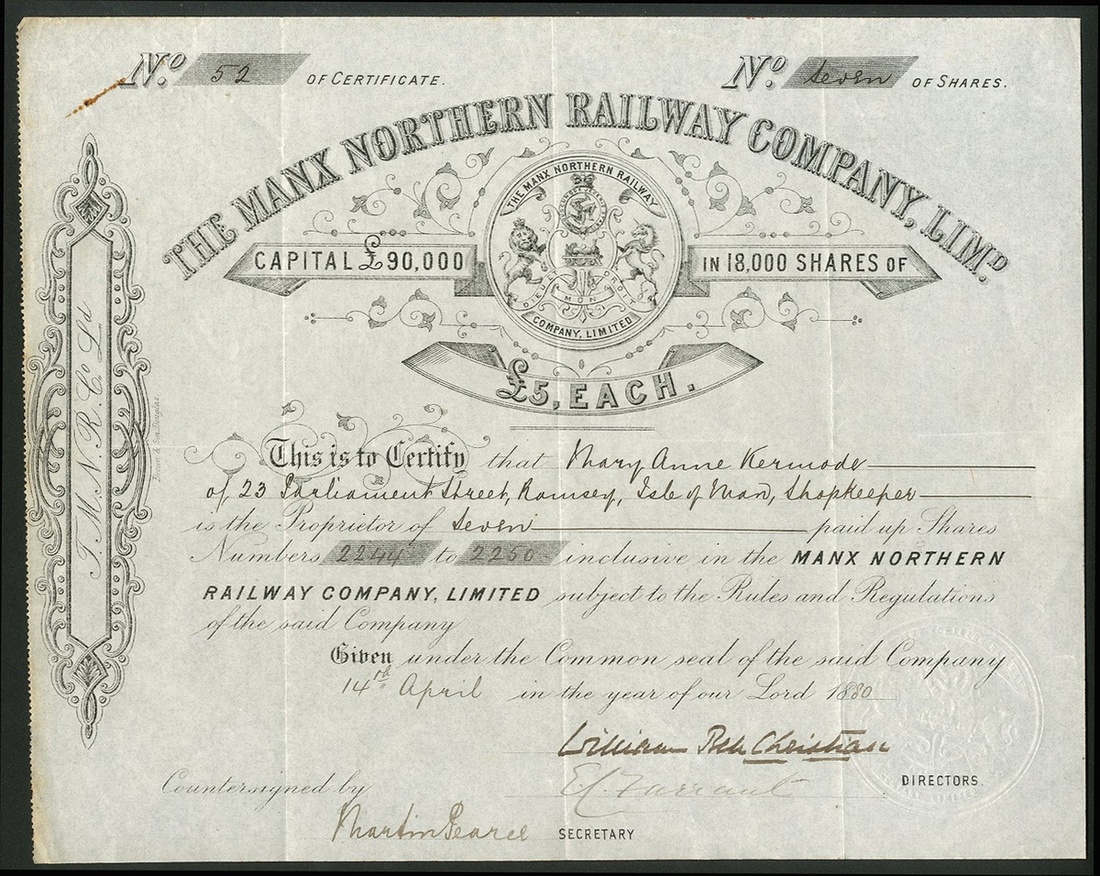 No. 52 OF CERTIFICATE.
No. Seven OF SHARES.
THE MANX NORTHERN RAILWAY COMPANY, LIMD.
THE MANX NORTHERN RAILWAY
CAPITAL £90,000
IN 18,000 SHARES OF
DIEU ET MON DROIT
COMPANY, LIMITED
£5, EACH.
T. M. N. R. Co. Ld
Brown & Son Douglas.
This is to Certify that Mary Anne Kermode
of 23 Parliament Street, Ramsey, Isle of Man, Shopkeeper
is the Proprietor of Seven paid up Shares
Numbers 2244 to 2250 inclusive in the MANX NORTHERN
RAILWAY COMPANY, LIMITED subject to the Rules and Regulations
of the said Company
Given under the Common seal of the said Company
14th April in the year of our Lord 1880
William Bell Christian
E C Farrant
DIRECTORS.
Countersigned by
Martin Pearce SECRETARY